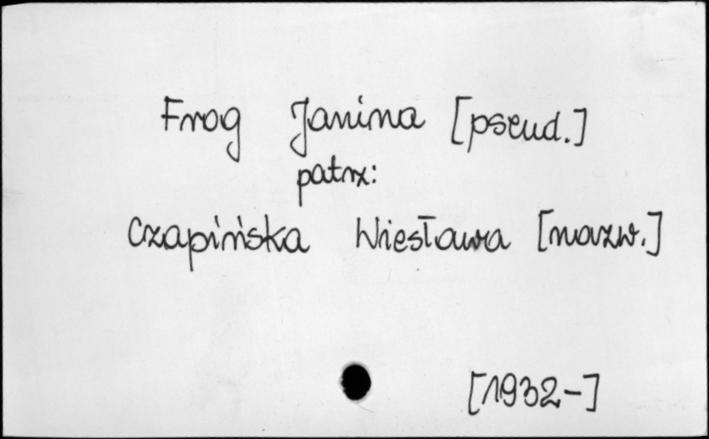 Frog Janina [pseud.]
patrz:
Czapińska Wiesława [nazw.]
[1932-]